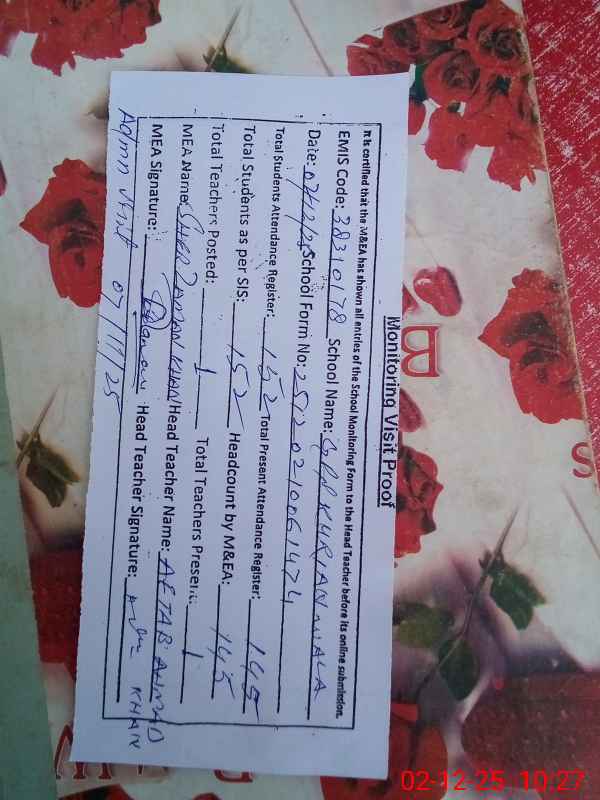 Monitoring Visit Proof
It is certified that the M&EA has shown all entries of the School Monitoring Form to the Head Teacher before its online submission.
EMIS Code: 38310178 School Name: KURIAN WALA
Date: 02/12/25 School Form No: 2512021006 1474
Total Students Attendance Register: 152 Total Present Attendance Register: 145
Total Students as per SIS: 152 Headcount by M&EA: 145
Total Teachers Posted: 1 Total Teachers Present: 1
MEA Name: SHER ZAMAN KHAN Head Teacher Name: AFTAB AHMAD KHAN
MEA Signature: Head Teacher Signature:
Admn visit 07/11/25
02-12-25 10:27